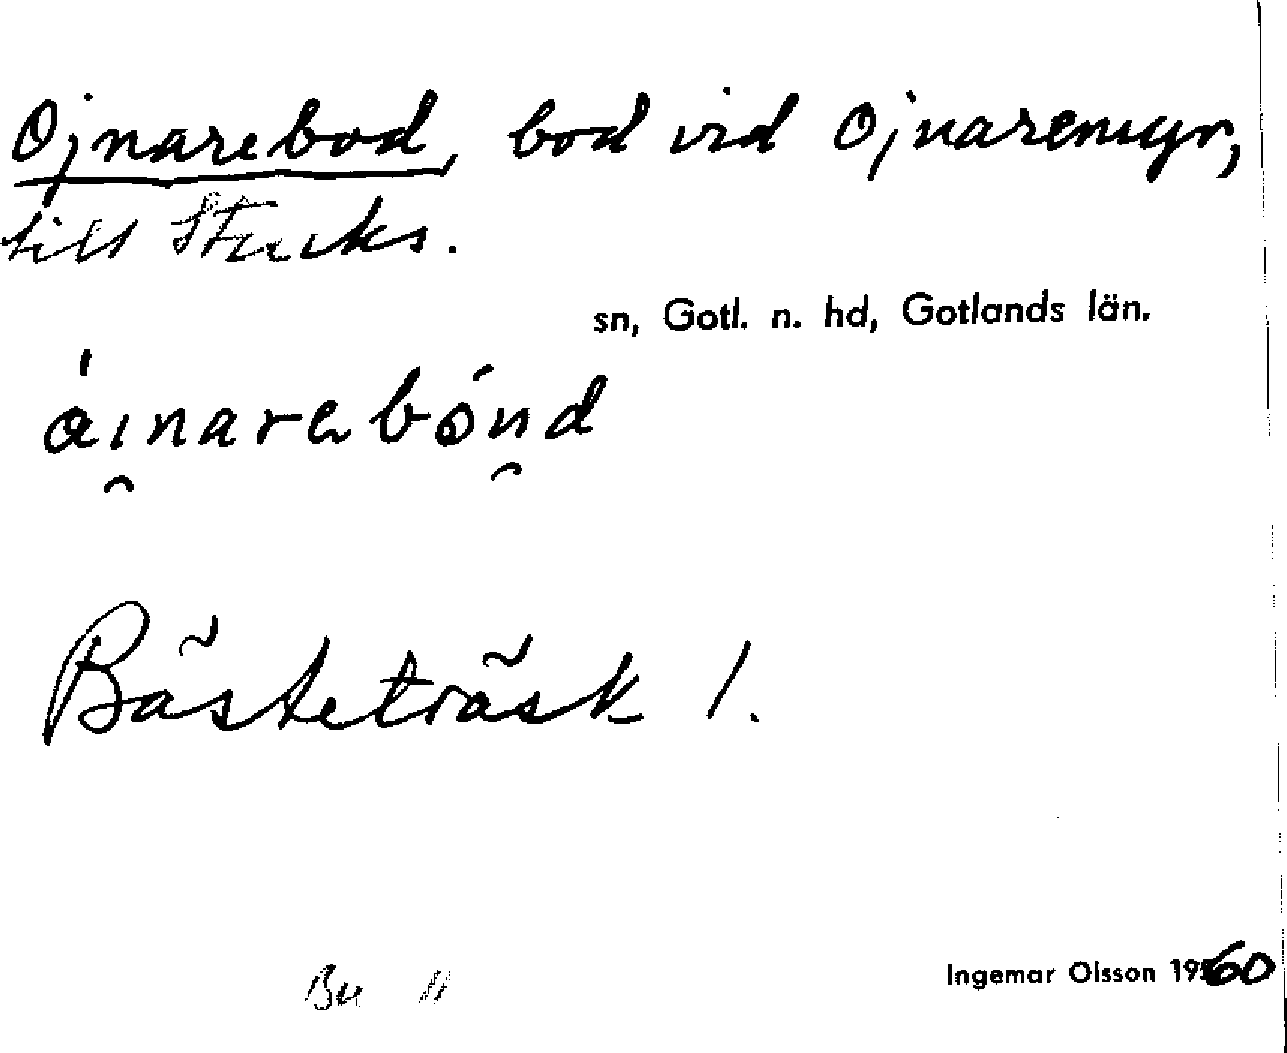 Ojnarebod, bod vid Ojnaremyr,
till Stucks.
sn, Gotl. n. hd, Gotlands län.
Bästeträsk 1.
Bu 11
Ingemar Olsson 1960